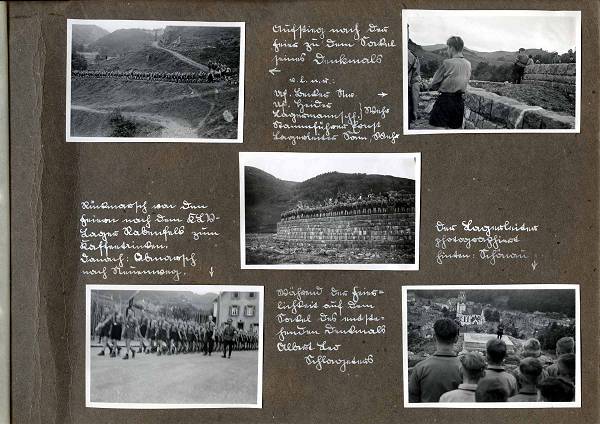 Aufstieg nach der
Feier zu dem Sockel
seines Denkmals
v. l. n. r.:
Uf. Becker Nw.
Uf. Heider
Lagermannsch.} Wehr
Stammführer Ernst
Lagerleiter Sam. Wehr
Rückmarsch von den
Feiern nach dem KLV-
Lager Rabenfels zum
Kaffeetrinken.
Danach: Abmarsch
nach Neuenweg.
Der Lagerleiter
photographiert
hinten: Schönau
Während der Feier-
lichkeit auf dem
Sockel des entste-
henden Denkmals
Albert Leo
Schlageters